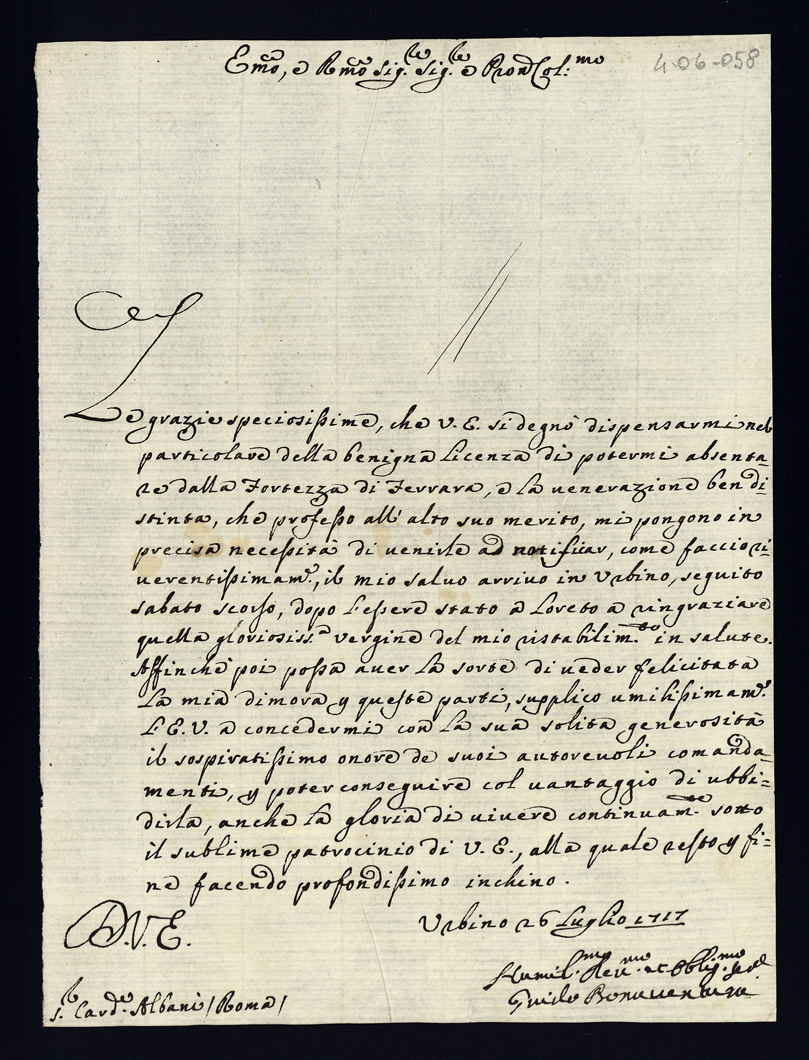 Em̃o, e Rm̃o Sig.re Sig.re e Pron Col:mo
4-06-058
Le grazie speciosissime, che V. E. si degnò dispensarmi nel
particolare della benigna licenza di potermi absenta=
re dalla Fortezza di Ferrara, e la venerazione ben di=
stinta, che professo all' alto suo merito, mi pongono in
precisa necessità di venirle ad notificar, come faccio ri=
verentissimam.e, il mio salvo arrivo in Urbino, seguito
sabato scorso, dopo l'essere stato a Loreto a ringraziare
quella glorioiss.a vergine del mio ristabilim.to in salute.
Affinchè poi possa aver la sorte di veder felicitata
la mia dimora p queste parti, supplico umilissimam.e
l'E. V. a concedermi con la sua solita generosità
il sospiratissimo onore de suoi autorevoli comanda=
menti, p poter conseguire col vantaggio di ubbi=
dirla, anche la gloria di vivere continuam.te sotto
il sublime patrocinio di V. E., alla quale resto p fi=
ne facendo profondissimo inchino.
D. V. E.
Urbino 26 Luglio 1717
Humil.mo Dev.mo et Oblig.mo
Guido Bonaventura
S.r Card.e Albani / Roma /